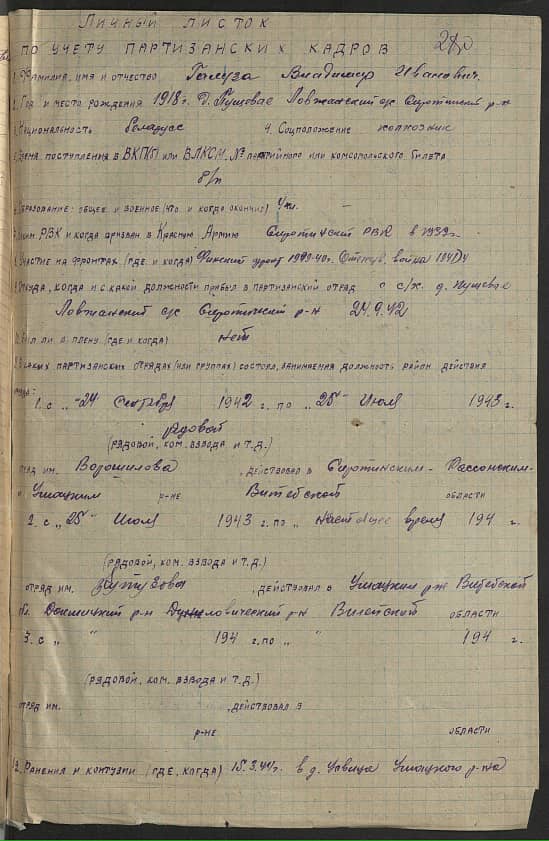 Личный листок
по учету партизанских кадров
1. Фамилия, имя и отчество Галуза Владимир Иванович.
2. Год и место рождения 1918 г. д. Пущевое Ловжанский с/с Сиротинский р-н
3. Национальность беларусс 4. Соцположение колхозник
5. Время поступления в ВКП(б) или ВЛКСМ, № партийного или комсомольского билета
б/п
6. Образование: общее и военное (что и когда окончил) 4 кл.
7. Каким РВК и когда призван в Красную Армию Сиротинский РВК в 1939 г.
8. Участие на фронтах (где и когда) Финский фронт 1939-40г. Отечув. война
9. Откуда, когда и с какой должности прибыл в партизанский отряд с с/х. д. Пущевое
Ловжанский с/с Сиротинский р-н 24.9.42
10. Был ли в плену (где и когда) нет
11. В каких партизанских отрядах (или группах) состоял, занимаемая должность район действия
отряда:
1. с „24 Сентября 1942 г. по „25" Июля 1943 г.
рядовой
(рядовой, ком. взвода и т.д.)
отряд им. Ворошилова, действовал в Сиротинским - Россонским-
и Ушацким р-не Витебской области
2. с „25" Июля 1943 г. по „ настоящее время 194 г.
(рядовой, ком. взвода и т.д.)
отряд им. Кутузова, действовал в Ушацким р-не Витебской
обл. Докшицкий р-н Дуниловический р-н Вилейской области
3. с „ " 194 г. по „ " 194 г.
(рядовой, ком. взвода и т.д.)
отряд им. , действовал в
р-не области
12. Ранения и контузии (где, когда) 15.3.44г. в д. Ушацкого р-на